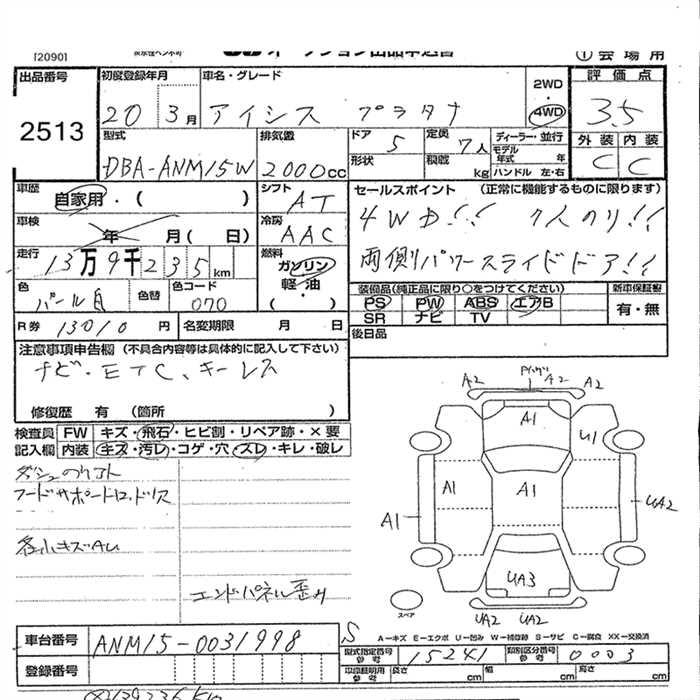 [2090]
① 会場用
出品番号
2513
初度登録年月
20 3月
車名・グレード
アイシス プラタナ
2WD
・
4WD
評価点
3.5
外装 内装
C C
型式
DBA-ANM15W
排気量
2000cc
ドア
5
形状
定員
7人
積載
kg
ディーラー・並行
モデル年式 年
ハンドル 左・右
車歴
自家用・( )
シフト
AT
セールスポイント (正常に機能するものに限ります)
4WD!! 7人のり!!
両側パワースライドドア!!
車検
年 月( 日)
冷房
AAC
走行
13万9千235km
燃料
ガソリン
軽油・
色
パール白
色替
色コード
070
装備品(純正品に限り○をつけてください)
PS PW ABS エアB
SR ナビ TV
新車保証書
有・無
R券 13010円
名変期限 月 日
後日品
注意事項申告欄 (不具合内容等は具体的に記入して下さい)
ナビ・ETC、キーレス
修復歴 有 (箇所 )
検査員
記入欄
FW キズ・飛石・ヒビ割・リペア跡・×要
内装 キズ・汚レ・コゲ・穴・スレ・キレ・破レ
フードサポートロッドリス
各小キズAU
エンドパネル歪み
A2 A2 A2
A1
U1
A1 A1 A1
UA2
UA3
UA2 UA2
スペア
S
A－キズ E－エクボ U－凹み W－補修跡 S－サビ C－腐食 XX－交換済
車台番号
ANM15-0031998
登録番号
型式指定番号
参考
15241
類別区分番号
参考
0003
長さ cm 幅 cm 高さ cm